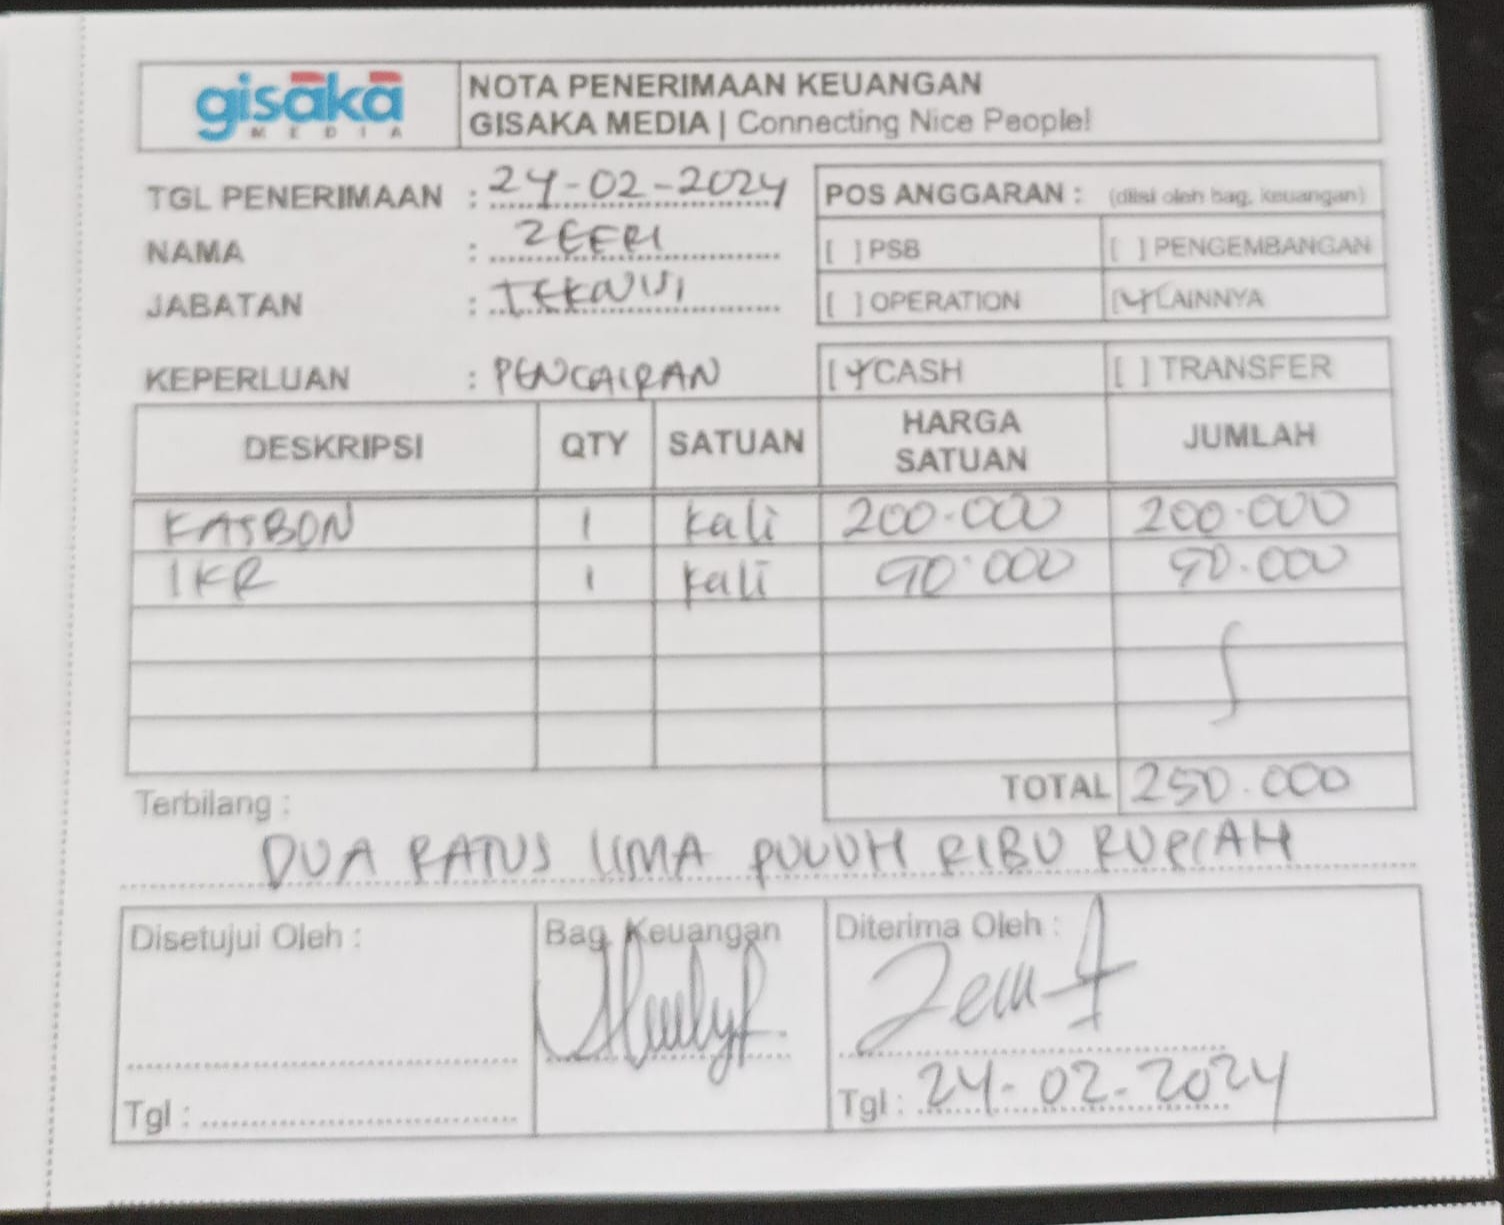 gisaka
MEDIA
NOTA PENERIMAAN KEUANGAN
GISAKA MEDIA | Connecting Nice People!
TGL PENERIMAAN : 24-02-2024
NAMA : ZEFRI
JABATAN : TEKNISI
POS ANGGARAN : (diisi oleh bag. keuangan)
[ ] PSB [ ] PENGEMBANGAN
[ ] OPERATION [✓] LAINNYA
KEPERLUAN : PENCAIRAN [✓] CASH [ ] TRANSFER
DESKRIPSI QTY SATUAN HARGA SATUAN JUMLAH
KASBON 1 kali 200.000 200.000
IKR 1 kali 50.000 50.000
TOTAL 250.000
Terbilang :
DUA RATUS LIMA PULUH RIBU RUPIAH
Disetujui Oleh : Bag Keuangan Diterima Oleh :
Tgl : Tgl : 24-02-2024